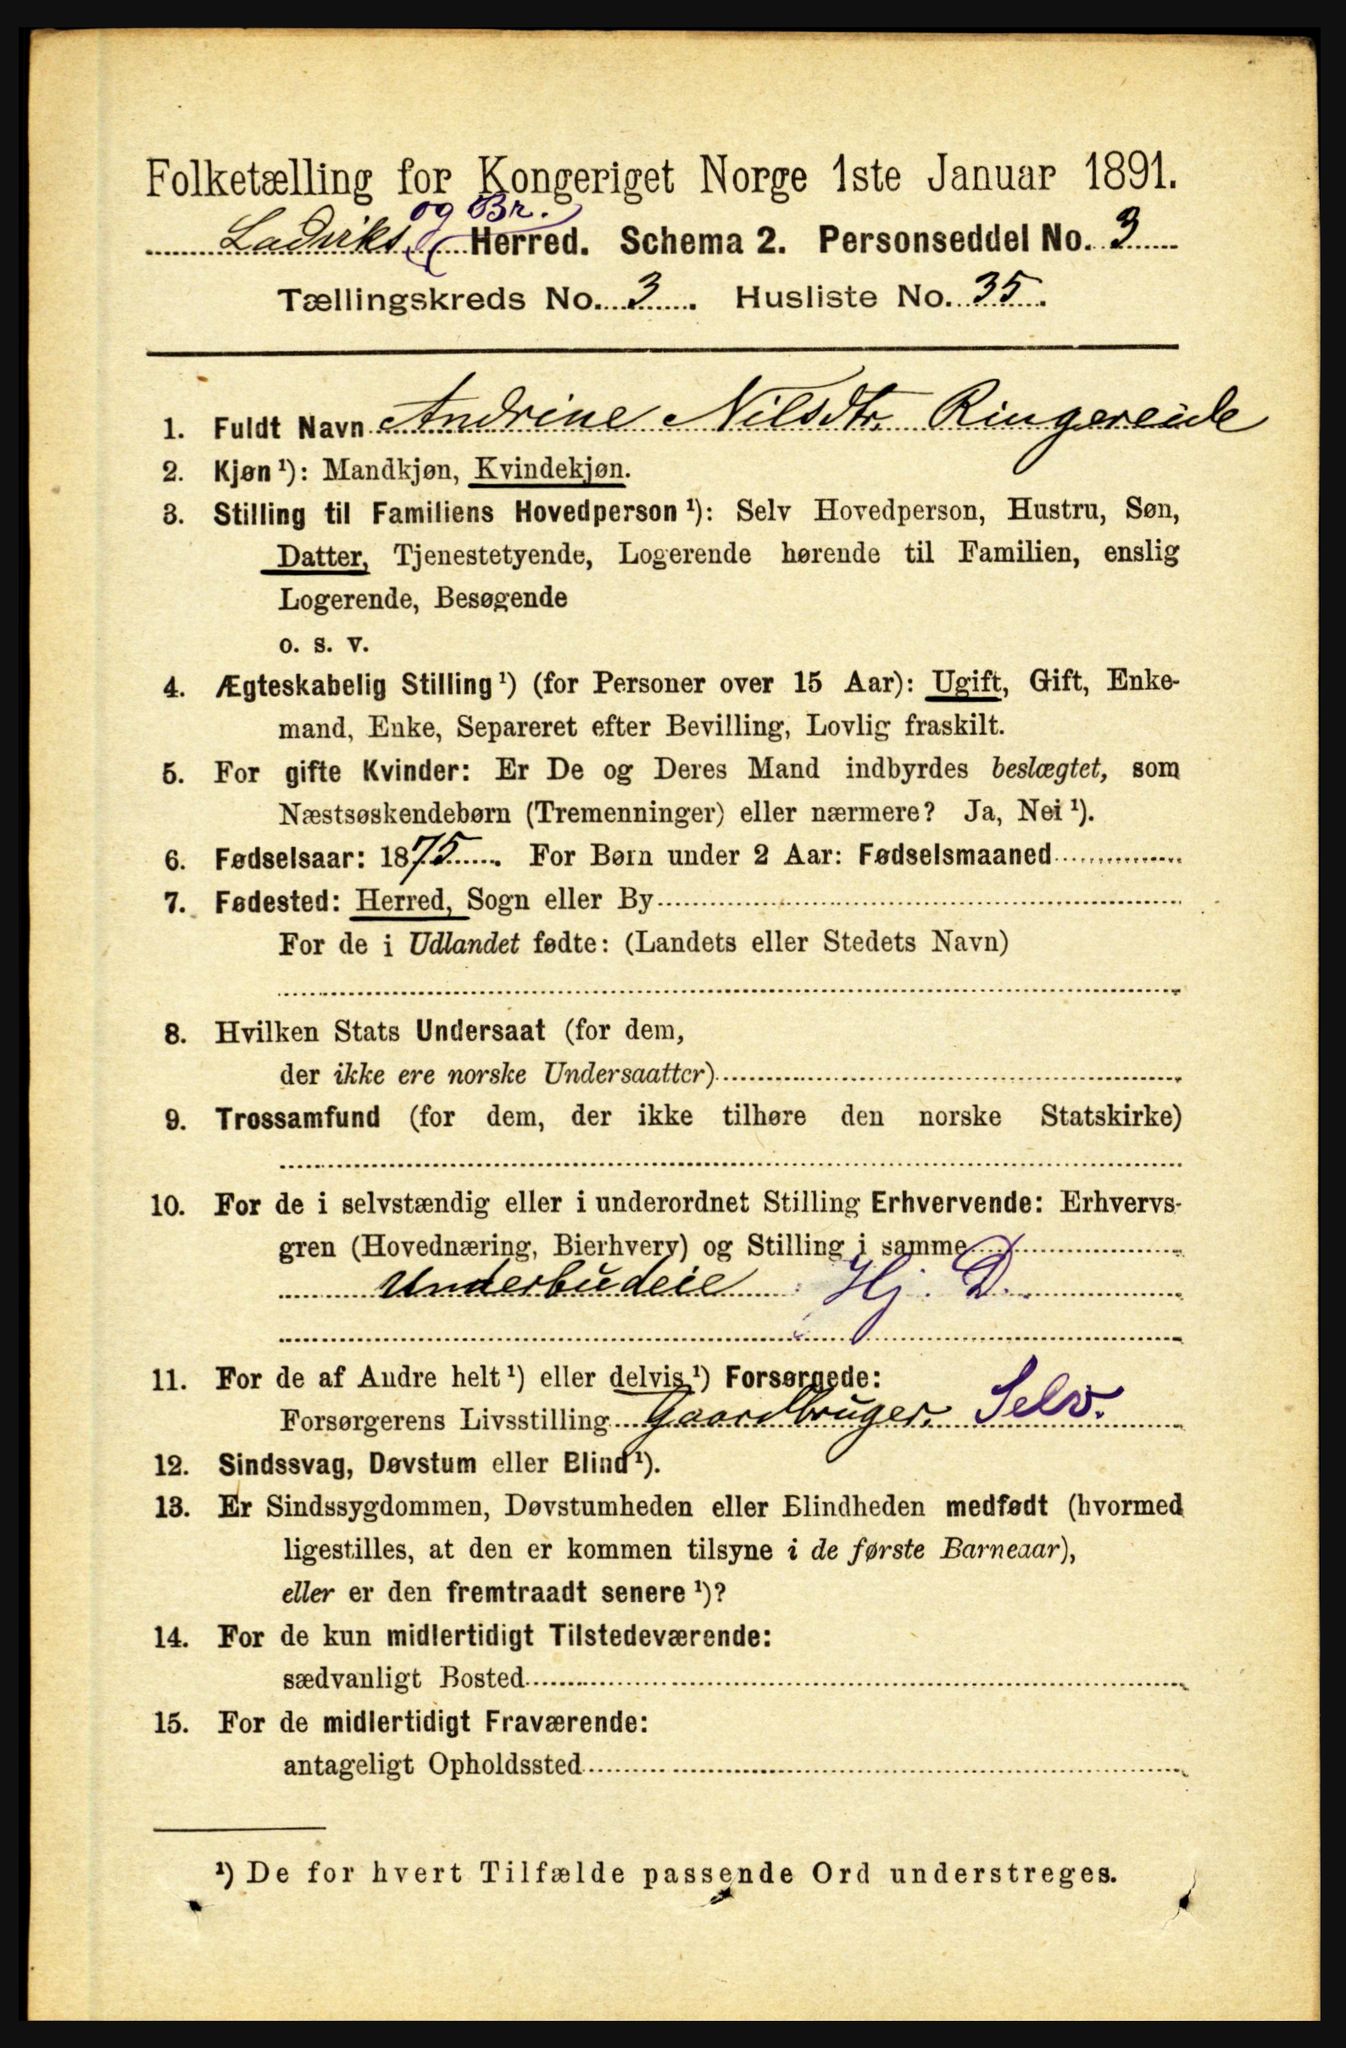 Folketælling for Kongeriget Norge 1ste Januar 1891.
og Br.
Ladviks Herred. Schema 2. Personseddel No. 3
Tællingskreds No. 3. Husliste No. 35.
1. Fuldt Navn Andrine Nilsdtr. Ringereide
2. Kjøn¹): Mandkjøn, Kvindekjøn.
3. Stilling til Familiens Hovedperson¹): Selv Hovedperson, Hustru, Søn,
Datter, Tjenestetyende, Logerende hørende til Familien, enslig
Logerende, Besøgende
o. s. v.
4. Ægteskabelig Stilling¹) (for Personer over 15 Aar): Ugift, Gift, Enke-
mand, Enke, Separeret efter Bevilling, Lovlig fraskilt.
5. For gifte Kvinder: Er De og Deres Mand indbyrdes beslægtet, som
Næstsøskendebørn (Tremenninger) eller nærmere? Ja, Nei¹).
6. Fødselsaar: 1875. For Børn under 2 Aar: Fødselsmaaned
7. Fødested: Herred, Sogn eller By
For de i Udlandet fødte: (Landets eller Stedets Navn)
8. Hvilken Stats Undersaat (for dem,
der ikke ere norske Undersaatter)
9. Trossamfund (for dem, der ikke tilhøre den norske Statskirke)
10. For de i selvstændig eller i underordnet Stilling Erhvervende: Erhvervs-
gren (Hovednæring, Bierhverv) og Stilling i samme
Underbudeie Hj. D.
11. For de af Andre helt¹) eller delvis¹) Forsørgede:
Forsørgerens Livsstilling Gaardbruger. Selv.
12. Sindssvag, Døvstum eller Blind¹).
13. Er Sindssygdommen, Døvstumheden eller Blindheden medfødt (hvormed
ligestilles, at den er kommen tilsyne i de første Barneaar),
eller er den fremtraadt senere¹)?
14. For de kun midlertidigt Tilstedeværende:
sædvanligt Bosted
15. For de midlertidigt Fraværende:
antageligt Opholdssted
¹) De for hvert Tilfælde passende Ord understreges.